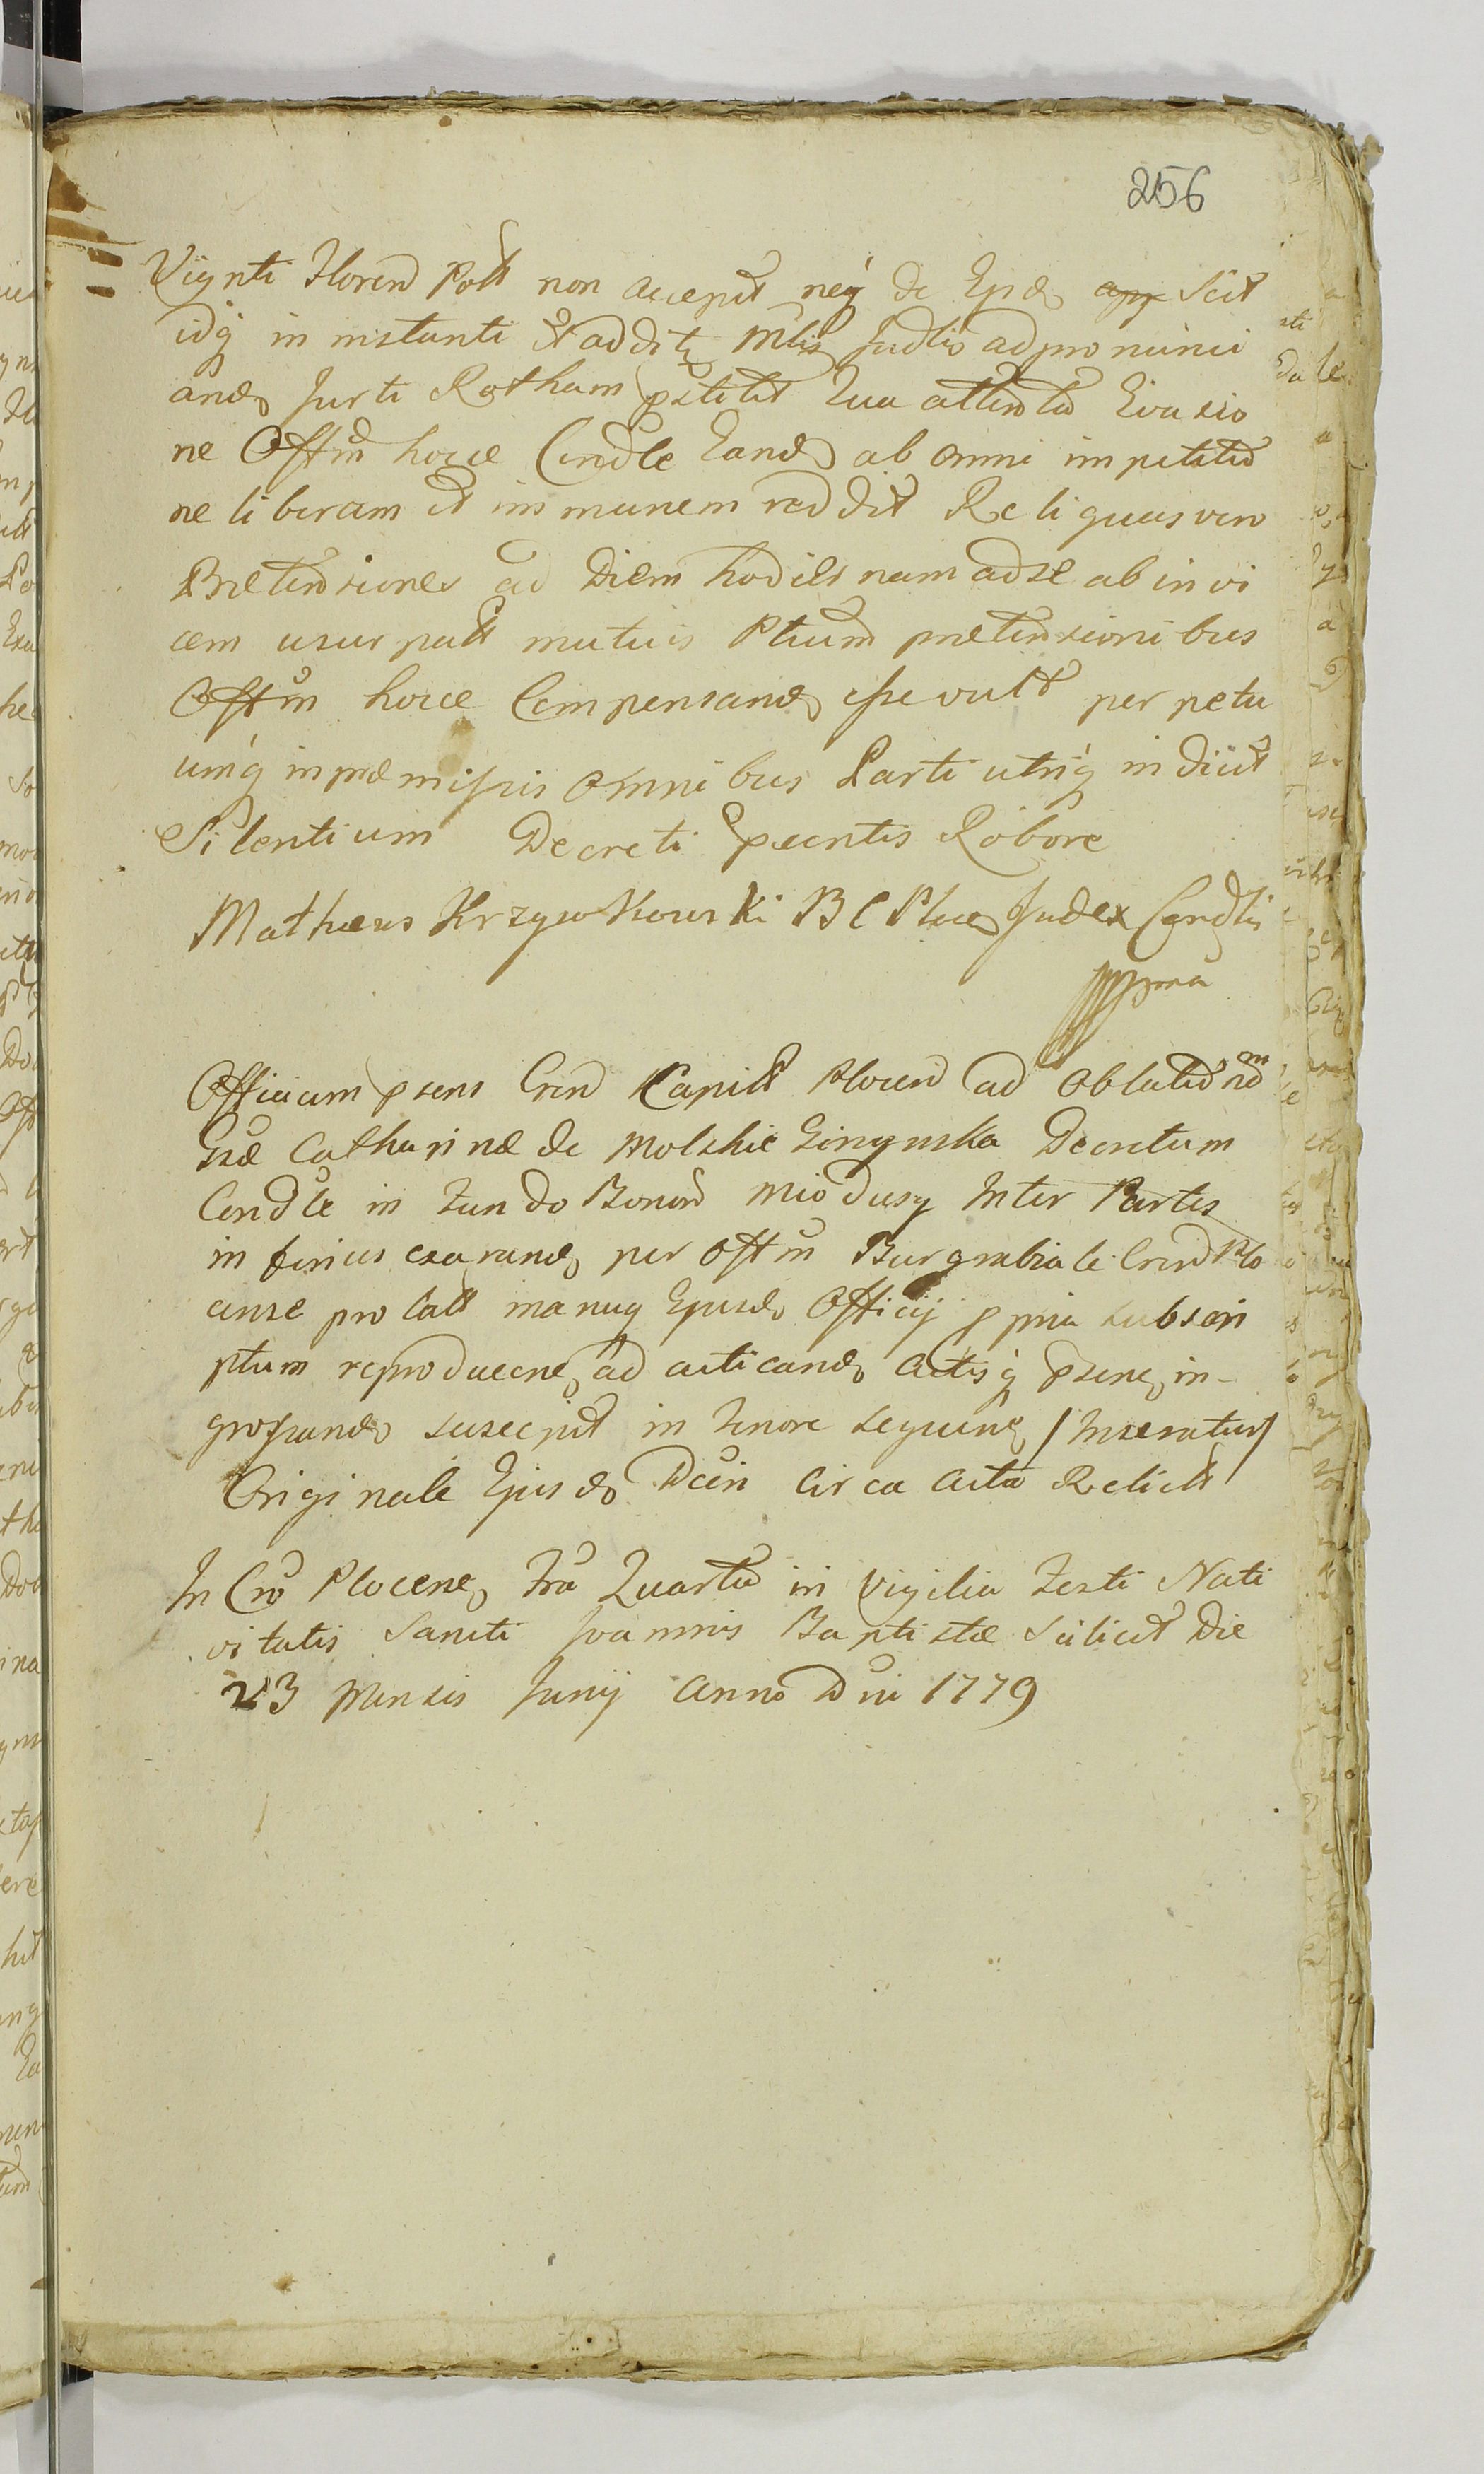 256
Viynti Floren Polt non accepit neq de Ejsd app Scit
idq in instanti traddita Mlis Judlis ad pronunci
and Jurti Rotham pstitit Qua attenta Evasio
ne Offm hocce Condle Eand ab omni impetitio
ne liberam et immunem reddit Reliquas vero
Prætensiones ad Diem hodiernam ad se ab invi
cem usurpatt mutuis Ptium prætensionibus
Offm hocce Compensand esse vult perpetu
umq in præmissis omnibus Parti utriq indicit
Silentium Decreti pæcntis Robore
Mathæus Krzywkowski B C Ploc Judex Condlis
mpma
Officium psens Cren Capitt Plocen ad oblatio nem
Gsæ Catharinæ de Molskie Zinynska Decretum
Condle in Fundo Bonor Miodusy Inter Partes
inferius exarand per Offm Burgrabiale Cren Plo
cense prolatt manuq Ejusd Officij ppria subscri
ptum reproducend ad acticand Actisq psent in-
grossand suscepit in tenore sequent / Inseratur /
Originale Ejusd Dcti circa Acta Relictt
In Cro Plocens Fra Quarta in Vigilia Festi Nati
vitatis Sancti Joannis Baptistæ Scilicet Die
23 Mensis Junij Anno Dni 1779